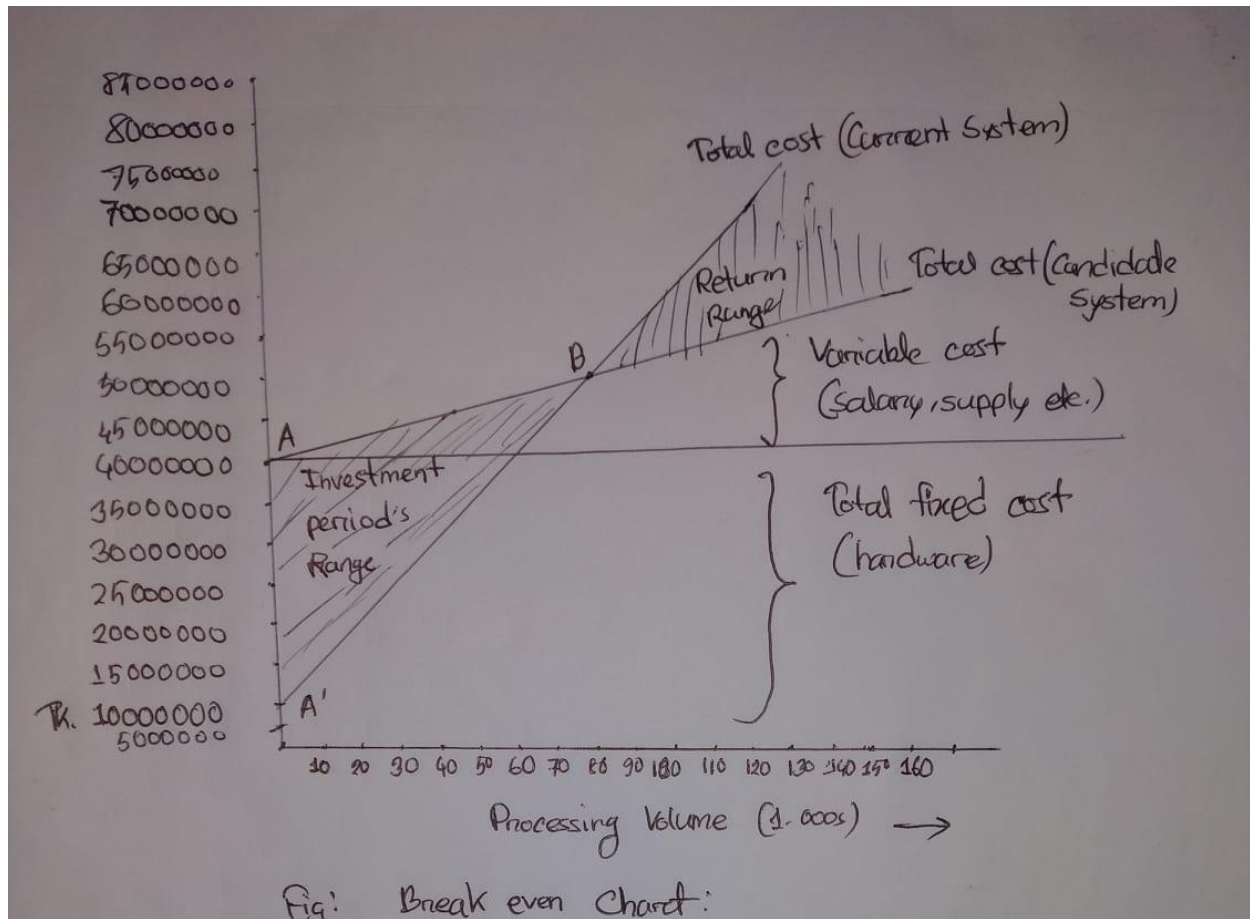 81000000
80000000
75000000
70000000
65000000
60000000
55000000
50000000
45000000
40000000
35000000
30000000
25000000
20000000
15000000
Tk. 10000000
5000000
Total cost (Current System)
Total cost (Candidade
System)
Return
Range
B
Variable cost
(salary, supply etc.)
A
Investment
period's
Range
Total fixed cost
(hardware)
A'
10 20 30 40 50 60 70 80 90 100 110 120 130 140 150 160
Processing Volume (1.000s)
Fig: Break even Chart: